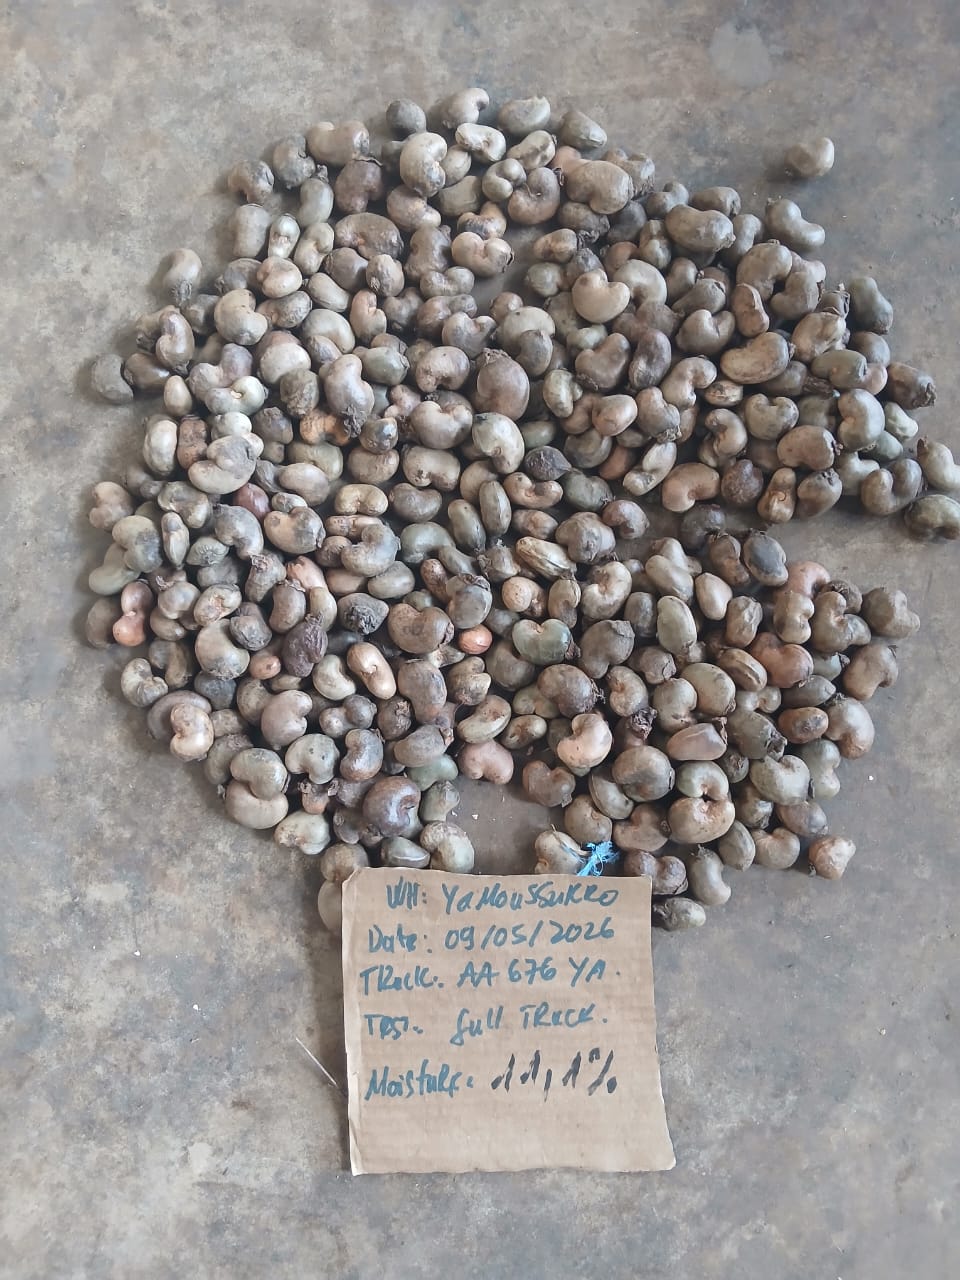 WH: YAMOUSSUKRO
Date: 09/05/2026
TRuck. AA 676 YA.
TEST. full TRUCK.
Moisture. 11,1%